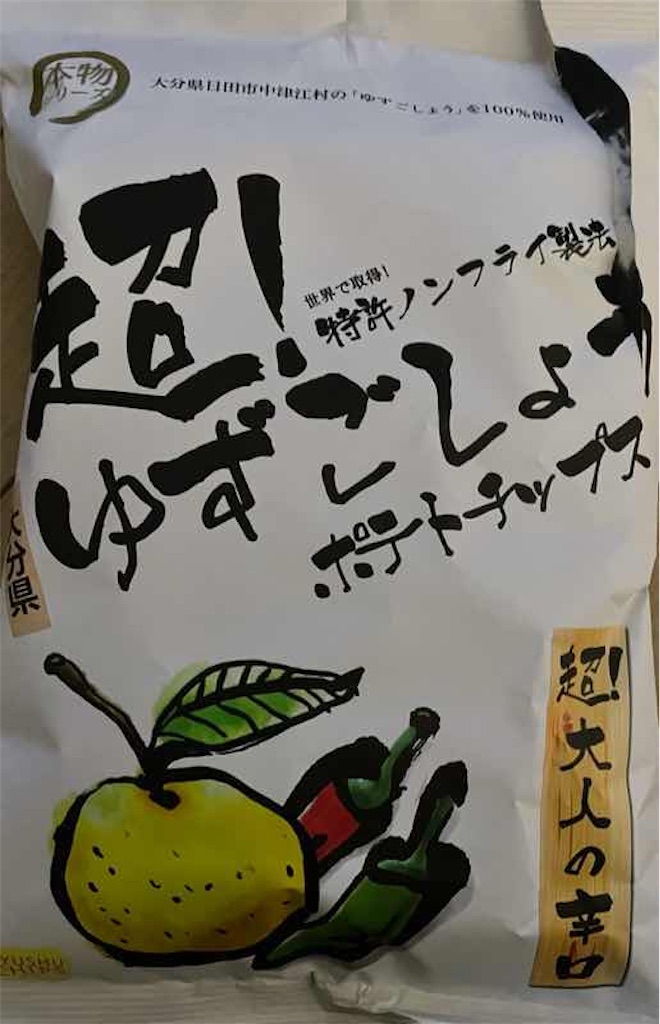 本物
シリーズ
大分県日田市中津江村の「ゆずごしょう」を100%使用
超!
世界で取得!
特許ノンフライ製法
ゆずごしょう
ポテトチップス
大分県
超!大人の辛口